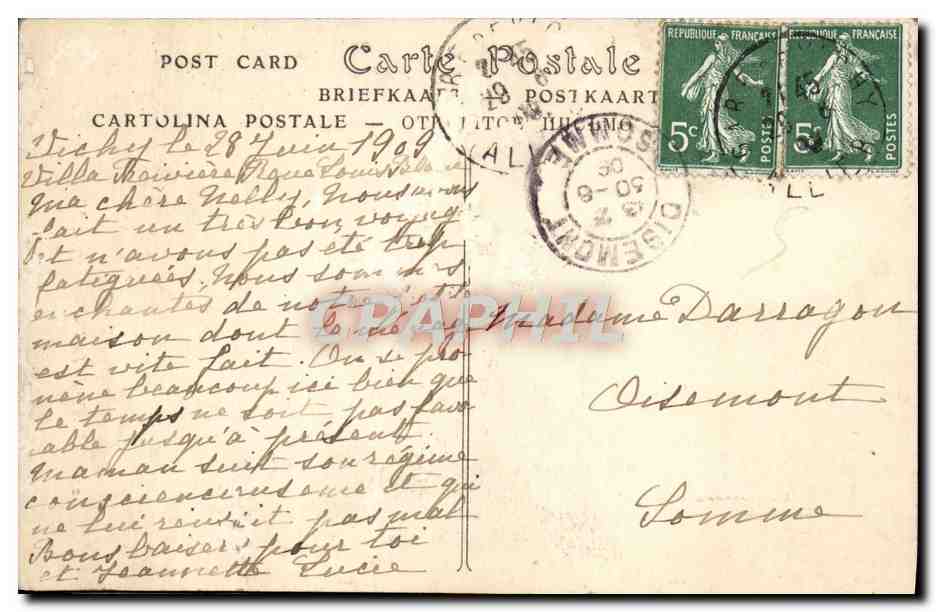 POST CARD Carte Postale
BRIEFKAART POSTKAART
CARTOLINA POSTALE —
RÉPUBLIQUE FRANÇAISE
5c
POSTES
RÉPUBLIQUE FRANÇAISE
5c
POSTES
OISEMONT
SOMME
30-6
09
Vichy le 28 Juin 1909
Villa
Ma chère Nelly, Nous avons
fait un très bon voyage
et n'avons pas été trop
fatiguées, Nous sommes
enchantés de notre petite
maison dont le ménag
est vite fait. On se pro
mène beaucoup ici bien que
le temps ne soit pas favo
able jusqu'à présent
Maman suit son régime
consciencieuseme et qui
ne lui réussit pas mal
Bons baisers pour toi
et Jeannette Lucie
Madame Darragon
Oisemont
Somme
CPAPHIL